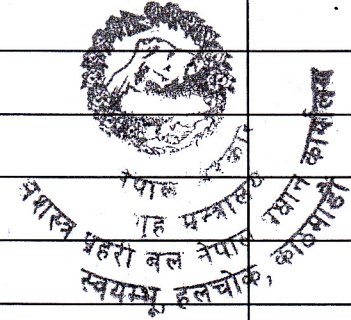 नेपाल
गृह मन्त्रालय
सशस्त्र प्रहरी बल नेपाल प्रधान कार्यालय
स्वयम्भू, हलचोक, काठमाडौं